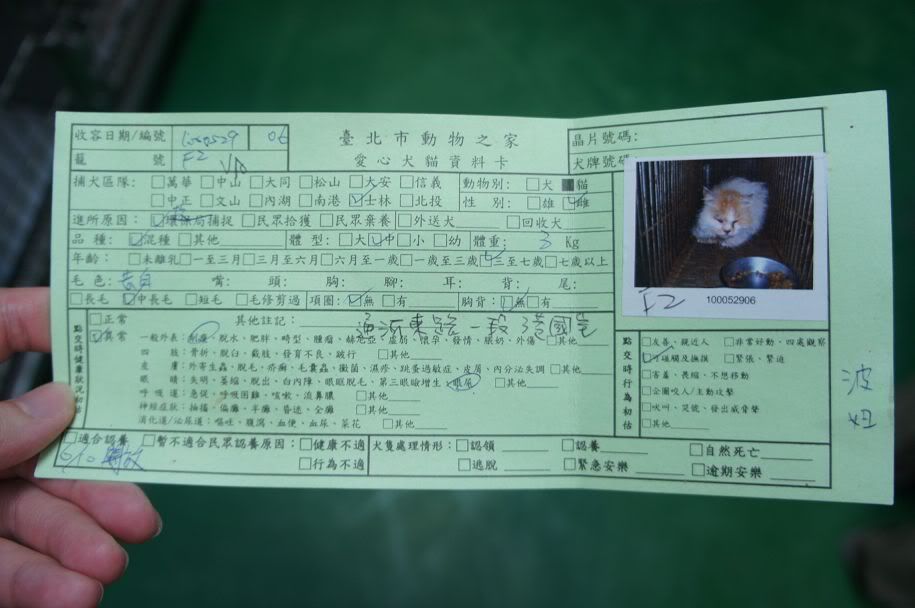 收容日期/編號 1000529 06
籠 號 F2
臺北市動物之家
愛心犬貓資料卡
晶片號碼:
犬牌號碼:
捕犬區隊: □萬華 □中山 □大同 □松山 □大安 □信義 動物別: □犬 ■貓
□中正 □文山 □內湖 □南港 ☑士林 □北投 性 別: □雄 ☑雌
進所原因: ☑環保局捕捉 □民眾拾獲 □民眾棄養 □外送犬 □回收犬
品 種: ☑混種 □其他 體 型: □大 ☑中 □小 □幼 體重: 3 Kg
年齡: □未離乳 □一至三月 □三月至六月 □六月至一歲 □一歲至三歲 ☑三至七歲 □七歲以上
毛色: 黃白 嘴: 頭: 胸: 腳: 耳: 背: 尾:
□長毛 ☑中長毛 □短毛 □毛修剪過 項圈: ☑無 □有 胸背: ☑無 □有
點交時健康狀況初估
□正常 其他註記:
☑異常 一般外表: 脫水、肥胖、畸型、腫瘤、赫尼亞、虛弱、懷孕、發情、脹奶、外傷 □其他
四 肢: 骨折、脫臼、截肢、發育不良、跛行 □其他
皮 膚: 外寄生蟲、脫毛、疥癬、毛囊蟲、黴菌、濕疹、跳蚤過敏症、皮屑、內分泌失調 □其他
眼 睛: 失明、萎縮、脫出、白內障、眼瞼脫毛、第三眼瞼增生、眼屎 □其他
呼 吸 道: 急促、呼吸困難、咳嗽、流鼻膿 □其他
神經症狀: 抽搐、偏癱、半癱、昏迷、全癱 □其他
消化道/泌尿道: 嘔吐、腹瀉、血便、血尿、菜花 □其他
點交時行為初估
□友善、親近人 □非常好動、四處觀察
☑可碰觸及撫摸 □緊張、緊迫
□害羞、畏縮、不想移動
□企圖咬人/主動攻擊
□吠叫、哭號、發出威脅聲
□其他
F2
100052906
波
妞
□適合認養 □暫不適合民眾認養原因: □健康不適 犬隻處理情形: □認領 □認養 □自然死亡
□行為不適 □逃脫 □緊急安樂 □逾期安樂
6/10 開放